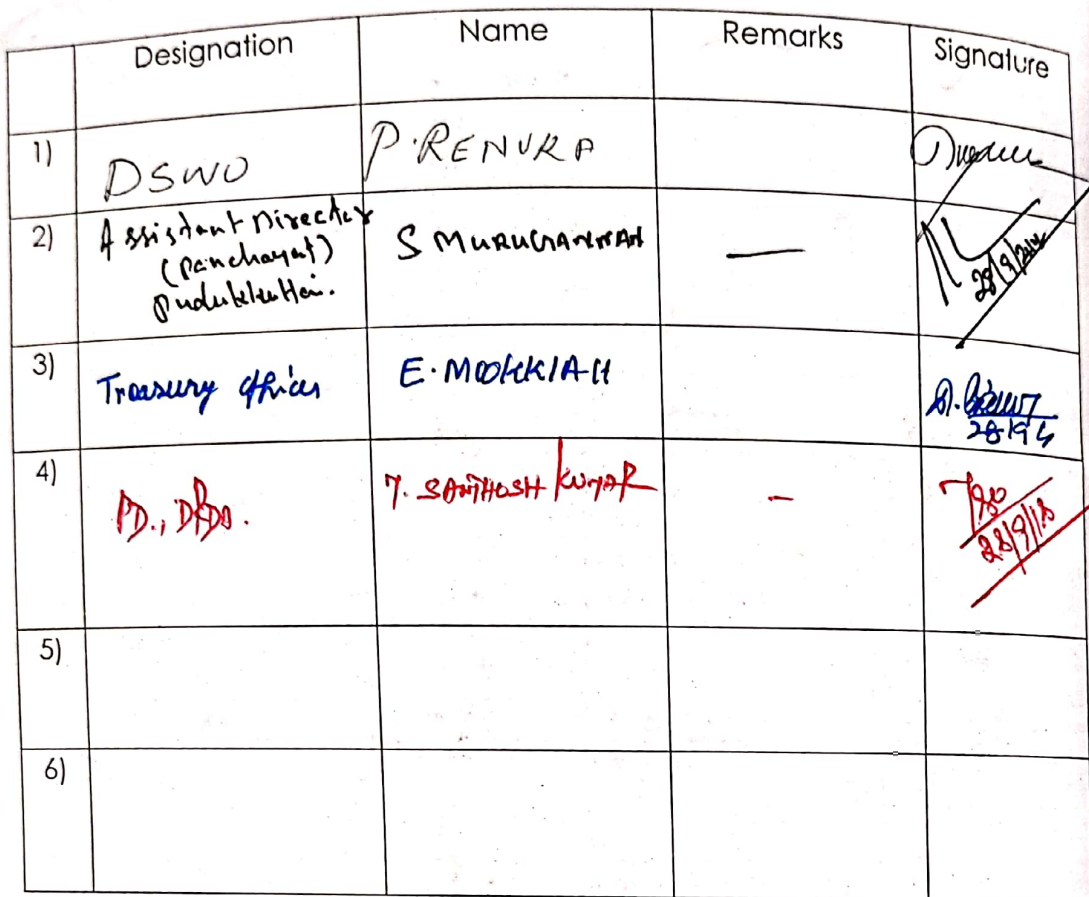 Designation Name Remarks Signature
1) DSWO P. RENUKA
2) Assistant Director S MURUGANNAN —
(Panchayat)
Pudukkottai.
3) Treasury Officer E. MOOKKIAH
28/9/
4) PD., DRDA. T. SANTHOSH KUMAR –
28/9/18
5)
6)